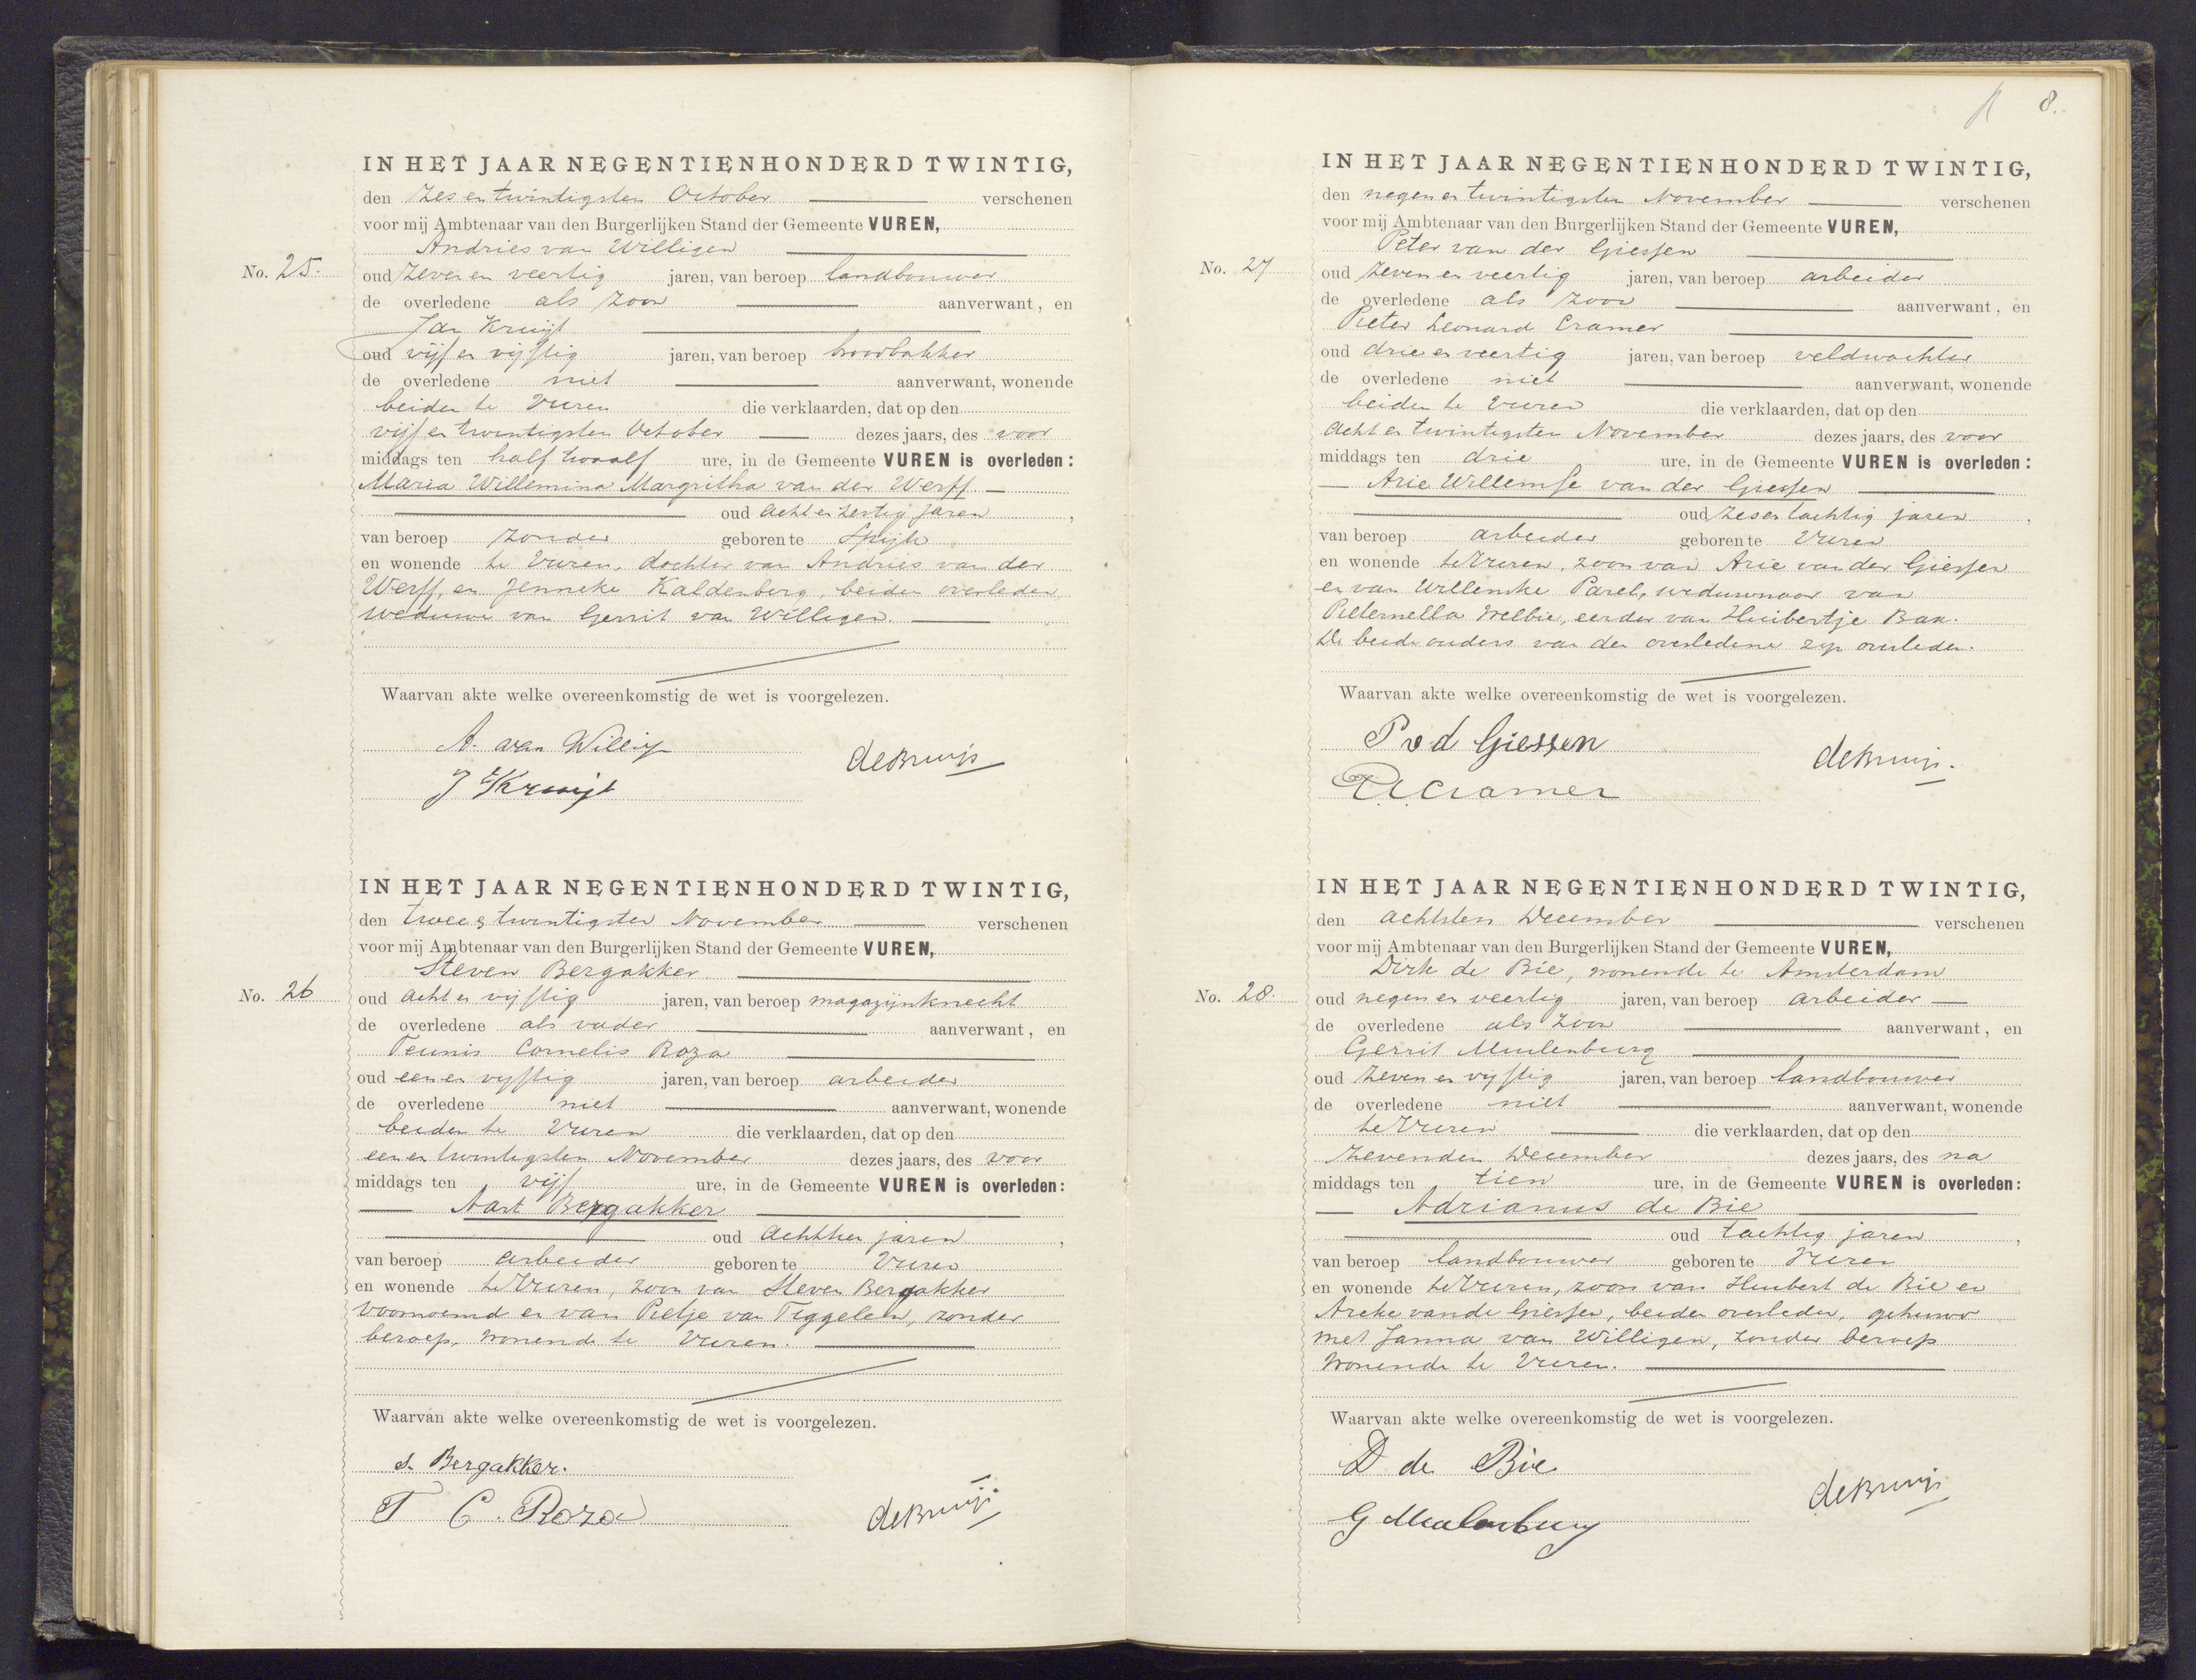 IN HET JAAR NEGENTIENHONDERD TWINTIG,
den zes en twintigsten October verschenen
voor mij Ambtenaar van den Burgerlijken Stand der Gemeente VUREN,
Andries van Willigen
No. 25. oud zeven en veertig jaren, van beroep landbouwer
de overledene als zoon aanverwant, en
Jan Kruijt
oud vijf en vijftig jaren, van beroep broodbakker
de overledene niet aanverwant, wonende
beiden te Vuren die verklaarden, dat op den
vijf en twintigsten October dezes jaars, des voor
middags ten half twaalf ure, in de Gemeente VUREN is overleden:
Maria Willemina Margritha van der Werff
oud acht en zestig jaren,
van beroep zonder geboren te Spijk
en wonende te Vuren, dochter van Andries van der
Werff, en Jenneke Kaldenberg, beiden overleden
weduwe van Gerrit van Willigen.
Waarvan akte welke overeenkomstig de wet is voorgelezen.
A. van Willig
J Kruijt
de Bruijn
IN HET JAAR NEGENTIENHONDERD TWINTIG,
den twee en twintigsten November verschenen
voor mij Ambtenaar van den Burgerlijken Stand der Gemeente VUREN,
Steven Bergakker
No. 26 oud acht en vijftig jaren, van beroep magazijnknecht
de overledene als vader aanverwant, en
Teunis Cornelis Roza
oud een en vijftig jaren, van beroep arbeider
de overledene niet aanverwant, wonende
beiden te Vuren die verklaarden, dat op den
een en twintigsten November dezes jaars, des voor
middags ten vijf ure, in de Gemeente VUREN is overleden:
Aart Bergakker
oud achttien jaren,
van beroep arbeider geboren te Vuren
en wonende te Vuren, zoon van Steven Bergakker
voornoemd en van Pietje van Tiggelen, zonder
beroep, wonende te Vuren.
Waarvan akte welke overeenkomstig de wet is voorgelezen.
S. Bergakker.
T C. Roza
de Bruijn
8.
IN HET JAAR NEGENTIENHONDERD TWINTIG,
den negen en twintigsten November verschenen
voor mij Ambtenaar van den Burgerlijken Stand der Gemeente VUREN,
Peter van der Giessen
No. 27 oud zeven en veertig jaren, van beroep arbeider
de overledene als zoon aanverwant, en
Pieter Leonard Cramer
oud drie en veertig jaren, van beroep veldwachter
de overledene niet aanverwant, wonende
beiden te Vuren die verklaarden, dat op den
acht en twintigsten November dezes jaars, des voor
middags ten drie ure, in de Gemeente VUREN is overleden:
Arie Willemse van der Giessen
oud zes en tachtig jaren,
van beroep arbeider geboren te Vuren
en wonende te Vuren, zoon van Arie van der Giessen
en van Willemke Parel, weduwnaar van
Pieternella Melbie, eerder van Huibertje Bax.
De beide ouders van den overledene zijn overleden.
Waarvan akte welke overeenkomstig de wet is voorgelezen.
P v d Giessen
Cramer
de Bruijn.
IN HET JAAR NEGENTIENHONDERD TWINTIG,
den achtsten December verschenen
voor mij Ambtenaar van den Burgerlijken Stand der Gemeente VUREN,
Dirk de Bie, wonende te Amsterdam
No. 28. oud negen en veertig jaren, van beroep arbeider
de overledene als zoon aanverwant, en
Gerrit Meulenburg
oud zeven en vijftig jaren, van beroep landbouwer
de overledene niet aanverwant, wonende
te Vuren die verklaarden, dat op den
zevenden December dezes jaars, des na
middags ten tien ure, in de Gemeente VUREN is overleden:
Adrianus de Bie
oud tachtig jaren,
van beroep landbouwer geboren te Vuren
en wonende te Vuren, zoon van Huibert de Bie en
Areke van de Giessen, beiden overleden, gehuwd
met Janna van Willigen, zonder beroep
wonende te Vuren.
Waarvan akte welke overeenkomstig de wet is voorgelezen.
D de Bie
G Meulenburg
de Bruijn